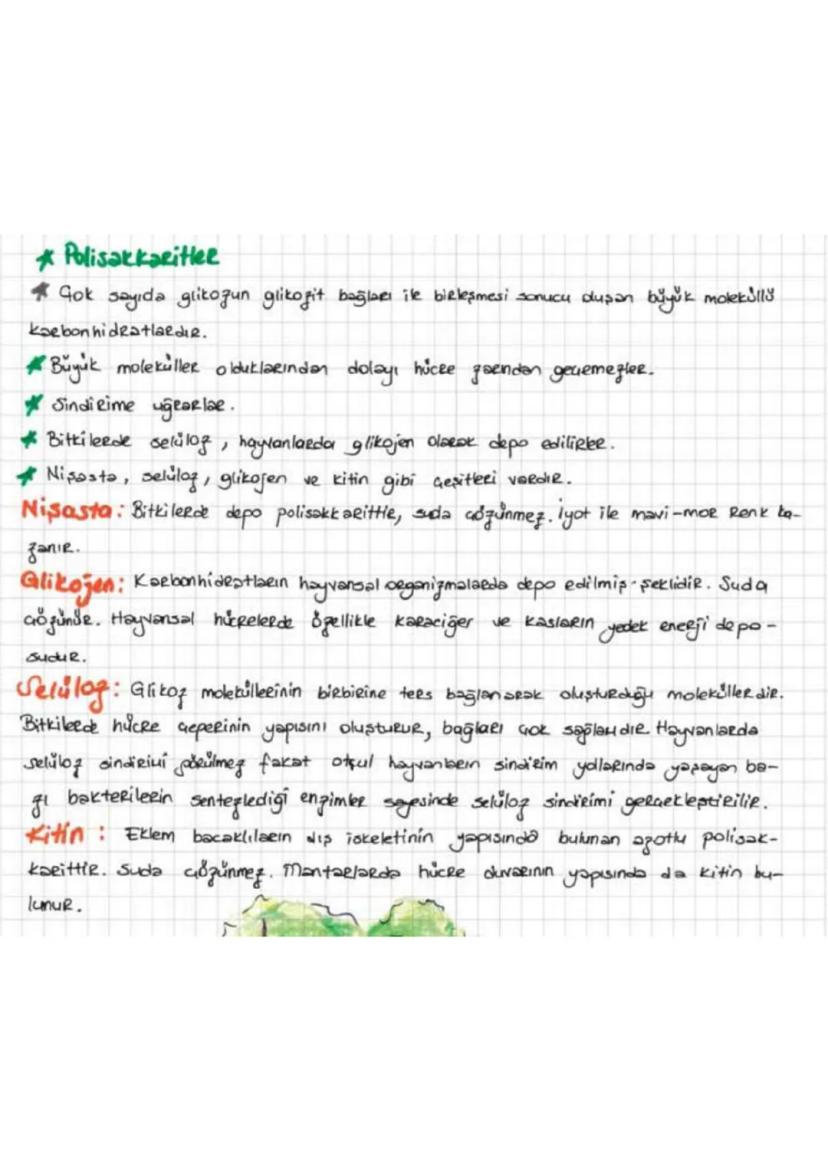 Polisakkaritler
Çok sayıda glikozun glikozit bağları ile birleşmesi sonucu oluşan büyük moleküllü
karbonhidratlardır.
Büyük moleküller olduklarından dolayı hücre zarından geçemezler.
Sindirime uğrarlar.
Bitkilerde selüloz, hayvanlarda glikojen olarak depo edilirler.
Nişasta, selüloz, glikojen ve kitin gibi çeşitleri vardır.
Nişasta: Bitkilerde depo polisakkarittir, suda çözünmez. İyot ile mavi-mor renk ka-
zanır.
Glikojen: Karbonhidratların hayvansal organizmalarda depo edilmiş şeklidir. Suda
çözünür. Hayvansal hücrelerde özellikle karaciğer ve kasların yedek enerji depo-
sudur.
Selüloz: Glikoz moleküllerinin birbirine ters bağlanarak oluşturduğu moleküllerdir.
Bitkilerde hücre çeperinin yapısını oluşturur, bağları çok sağlamdır. Hayvanlarda
selüloz sindirimi görülmez fakat otçul hayvanların sindirim yollarında yaşayan ba-
zı bakterilerin sentezlediği enzimler sayesinde selüloz sindirimi gerçekleştirilir.
Kitin: Eklem bacaklıların dış iskeletinin yapısında bulunan azotlu polisak-
karittir. Suda çözünmez. Mantarlarda hücre duvarının yapısında da kitin bu-
lunur.